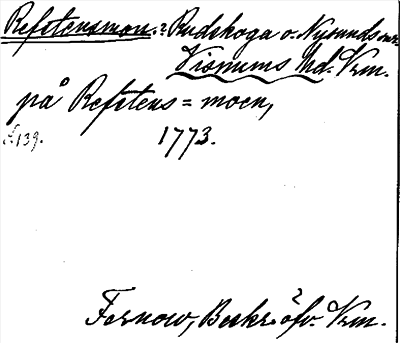 Refstensmon.: Rudskoga o. Nysunds snr
Visnums hd. Vrm.
på Refstens=moen,
s. 139. 1773.
Fernow, Beskr. öfv. Vrm.